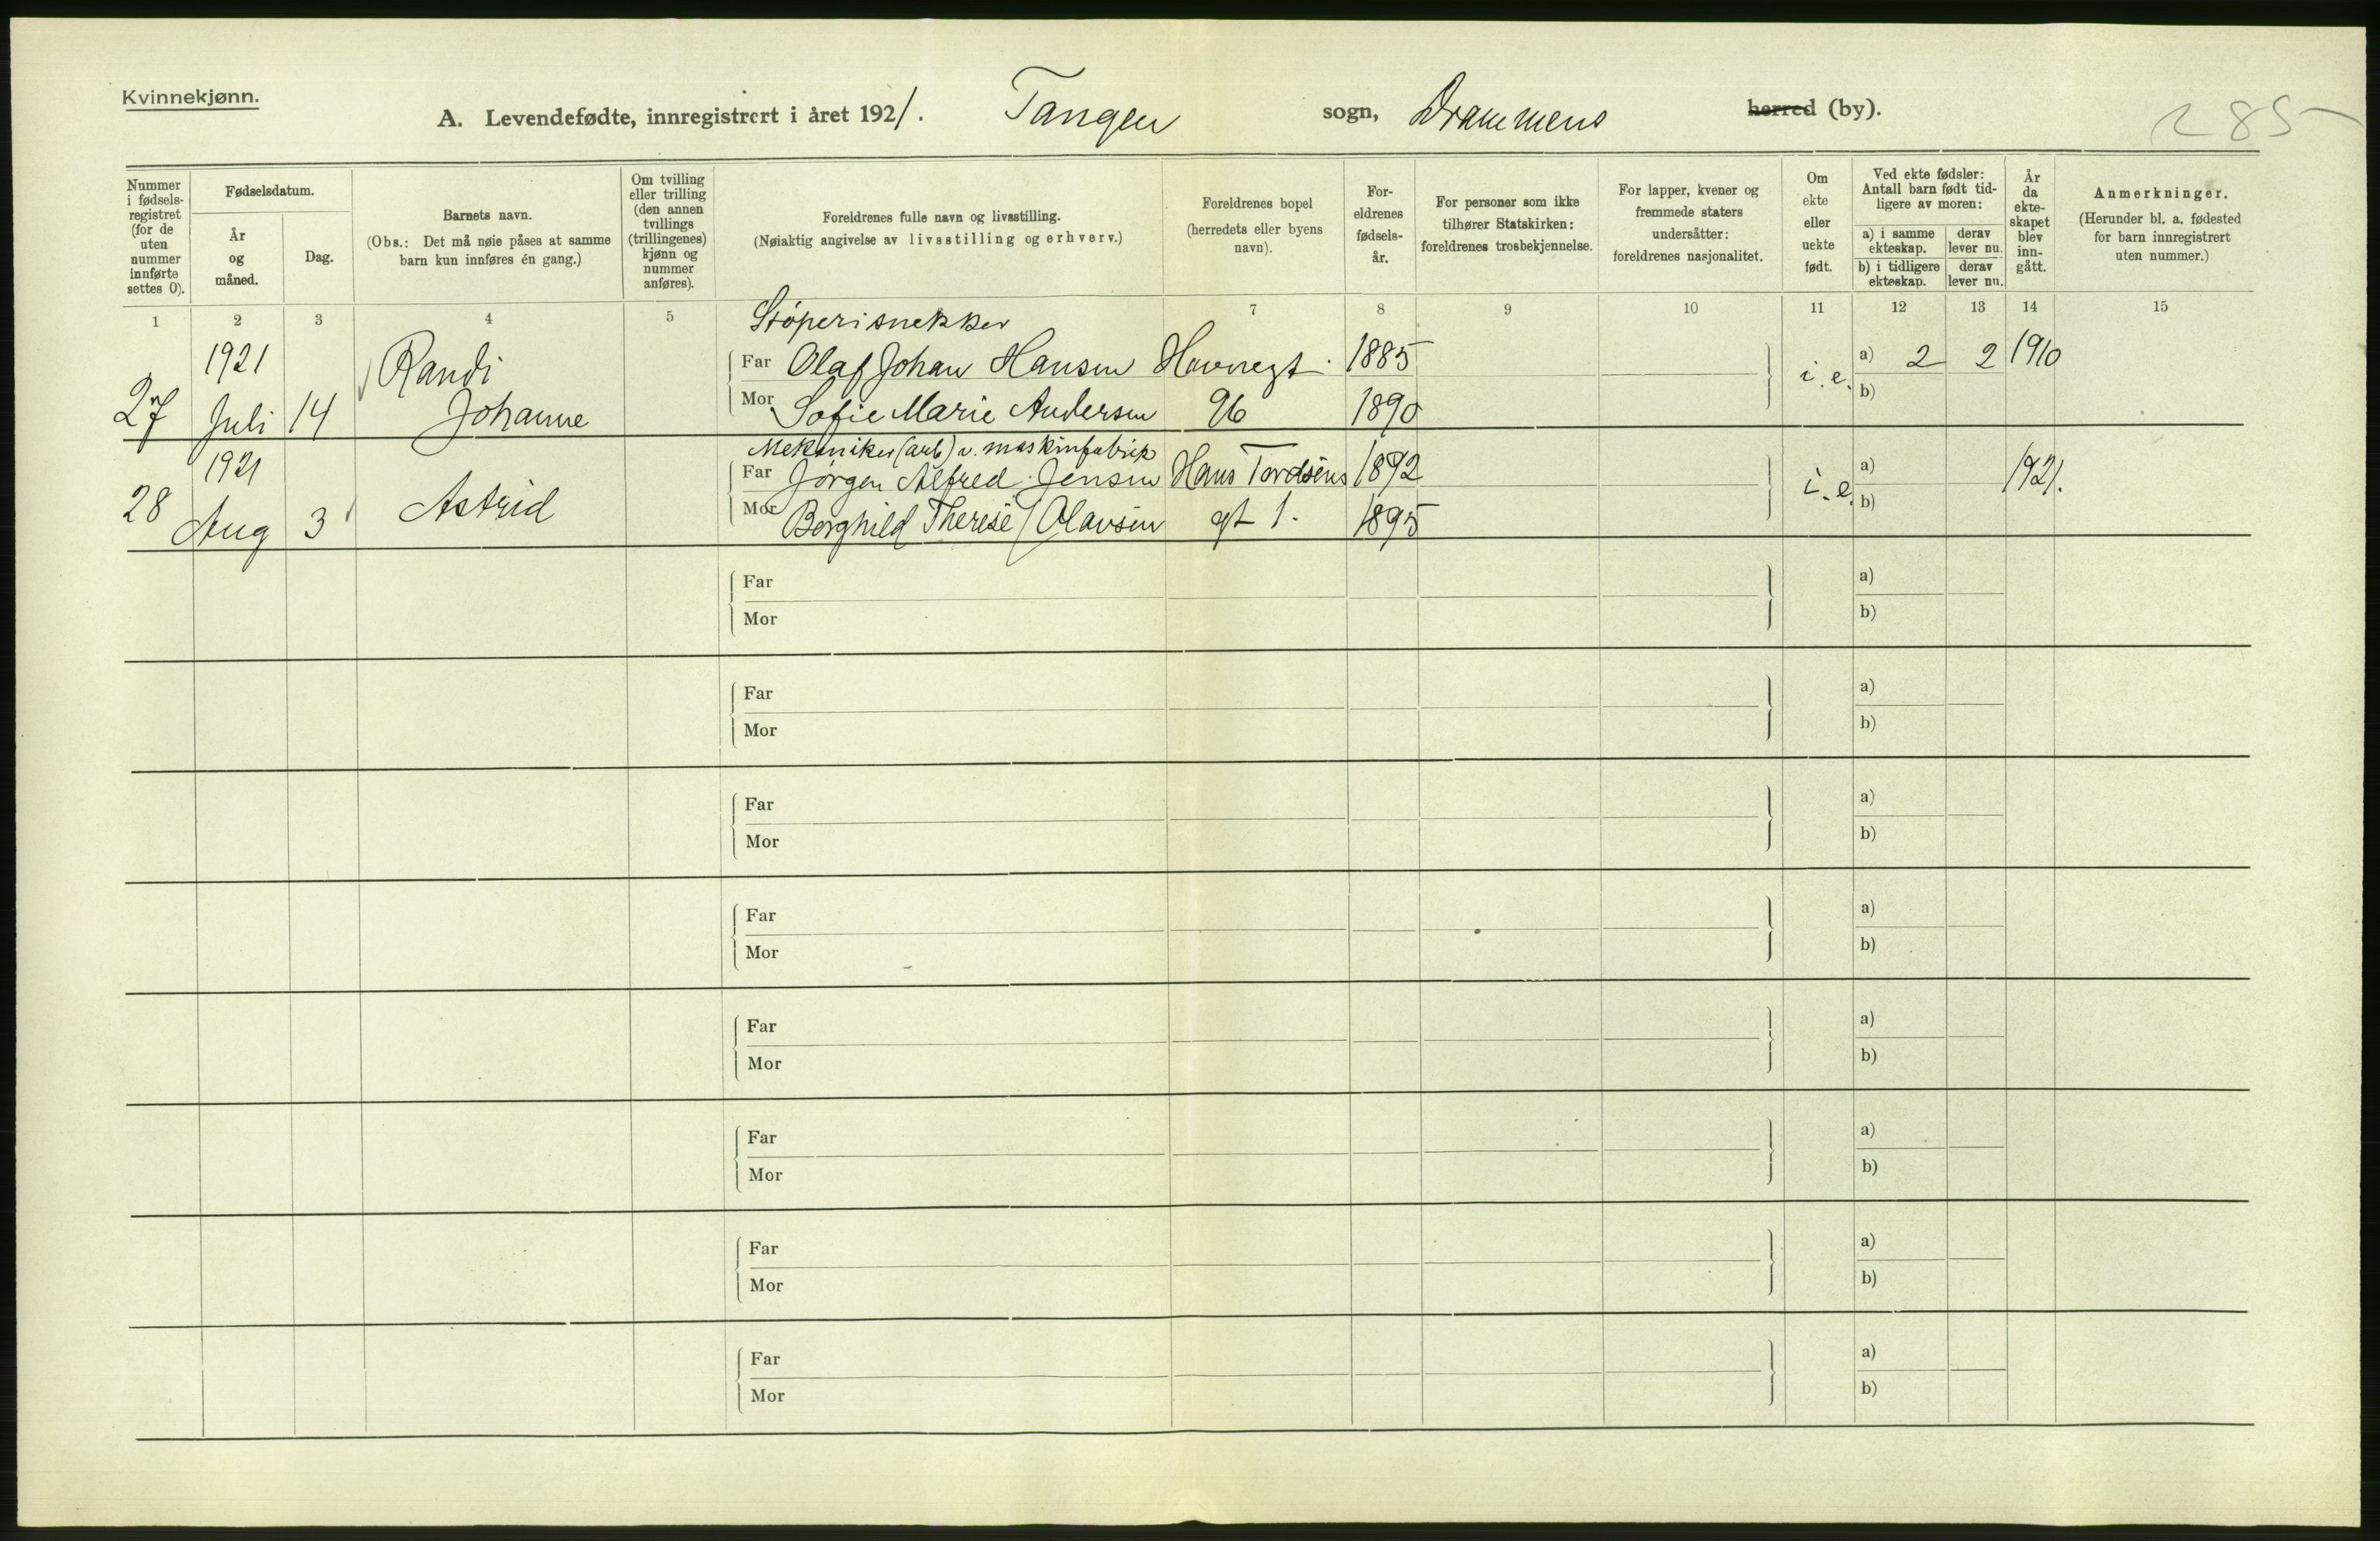 Kvinnekjønn.
A. Levendefødte, innregistrert i året 1921. Tangen sogn, Drammens herred (by).
285
Nummer i fødselsregistret (for de uten nummer innførte settes 0).
Fødselsdatum.
År og måned.
Dag.
Barnets navn.
(Obs.: Det må nøie påses at samme barn kun innføres én gang.)
Om tvilling eller trilling (den annen tvillings (trillingenes) kjønn og nummer anføres).
Foreldrenes fulle navn og livsstilling.
(Nøiaktig angivelse av livsstilling og erhverv.)
Foreldrenes bopel (herredets eller byens navn).
Foreldrenes fødselsår.
For personer som ikke tilhører Statskirken: foreldrenes trosbekjennelse.
For lapper, kvener og fremmede staters undersåtter: foreldrenes nasjonalitet.
Om ekte eller uekte født.
Ved ekte fødsler: Antall barn født tidligere av moren:
a) i samme ekteskap. derav lever nu.
b) i tidligere ekteskap. derav lever nu.
År da ekteskapet blev inngått.
Anmerkninger.
(Herunder bl. a. fødested for barn innregistrert uten nummer.)
1 2 3 4 5 7 8 9 10 11 12 13 14 15
Støperisnekker
1921 Randi Far Olaf Johan Hansen Havnegt. 1885 i. e. a) 2 2 1910
27 Juli 14 Johanne Mor Sofie Marie Andersen 96 1890 b)
Mekaniker (arb) v. maskinfabrik
1921 Far Jørgen Alfred Jensen Hans Tordsens 1892 i. e. a) 1921.
28 Aug 3 Astrid Mor Borghild Therese Olavsen gt 1. 1895 b)
Far a)
Mor b)
Far a)
Mor b)
Far a)
Mor b)
Far a)
Mor b)
Far a)
Mor b)
Far a)
Mor b)
Far a)
Mor b)
Far a)
Mor b)